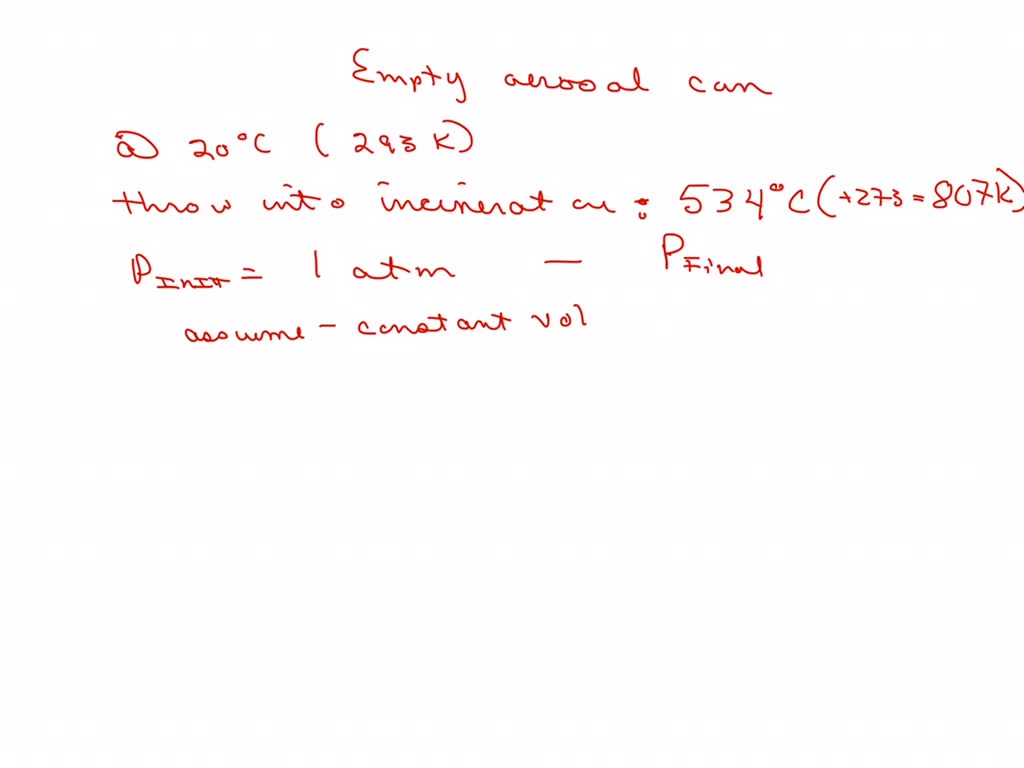 Empty aerosol can
@ 20°C (293 K)
throw into incinerator : 534°C (+273 = 807K)
P_INIT = 1 atm — P_Final
assume - constant vol